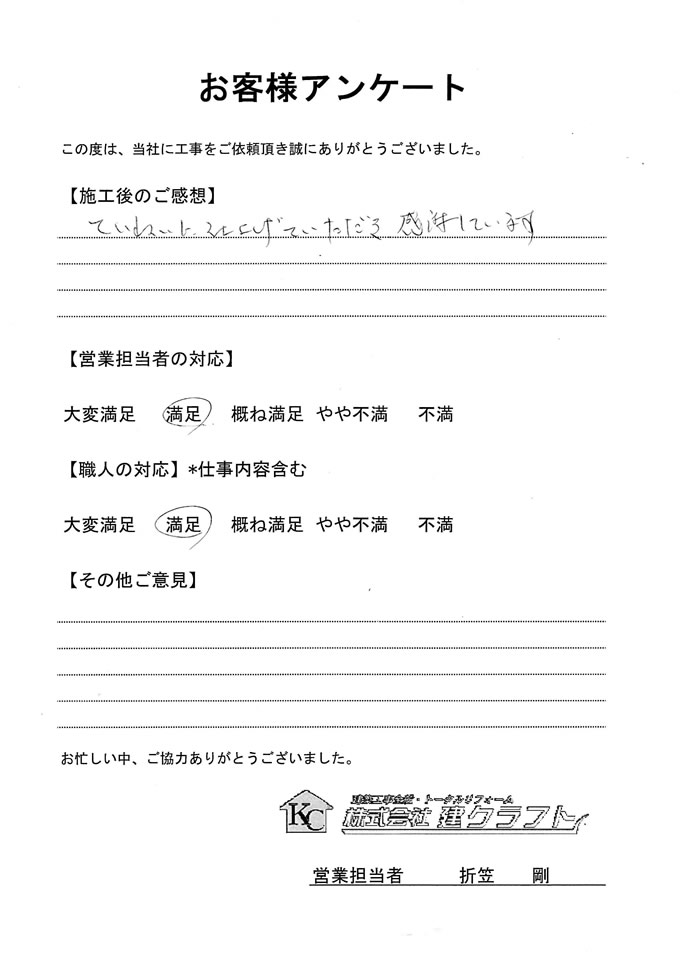 お客様アンケート
この度は、当社に工事をご依頼頂き誠にありがとうございました。
【施工後のご感想】
ていねいに仕上げていただき 感謝しています
【営業担当者の対応】
大変満足 満足 概ね満足 やや不満 不満
【職人の対応】*仕事内容含む
大変満足 満足 概ね満足 やや不満 不満
【その他ご意見】
お忙しい中、ご協力ありがとうございました。
KC
建築工事全般・トータルリフォーム
株式会社 建クラフト
営業担当者 折笠 剛